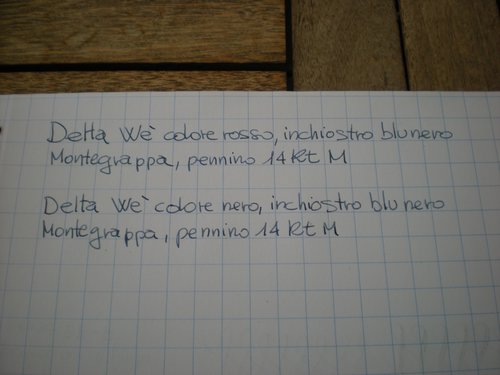 Delta Wè colore rosso, inchiostro blu nero
Montegrappa, pennino 14 kt M
Delta Wè colore nero, inchiostro blu nero
Montegrappa, pennino 14 kt M